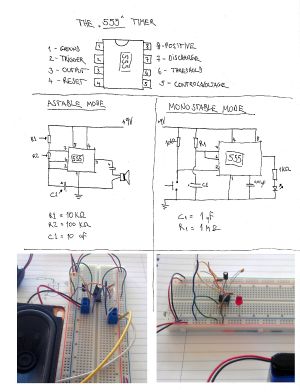 THE "555" TIMER
1 - GROUND
2 - TRIGGER
3 - OUTPUT
4 - RESET
8 - POSITIVE
7 - DISCHARGE
6 - THRESHOLD
5 - CONTROL VOLTAGE
ASTABLE MODE
+9V
R1
R2
555
C1
R1 = 10 KΩ
R2 = 100 KΩ
C1 = 10 uF
MONOSTABLE MODE
+9V
R1
555
C1
1KΩ
C1 = 1 uF
R1 = 1MΩ